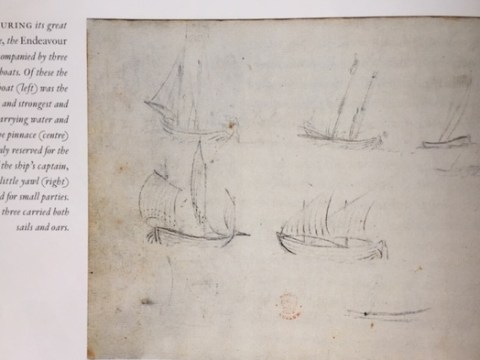 URING its great
, the Endeavour
companied by three
boats. Of these the
boat (left) was the
and strongest and
arrying water and
e pinnace (centre)
ly reserved for the
the ship's captain,
little yawl (right)
d for small parties.
three carried both
sails and oars.